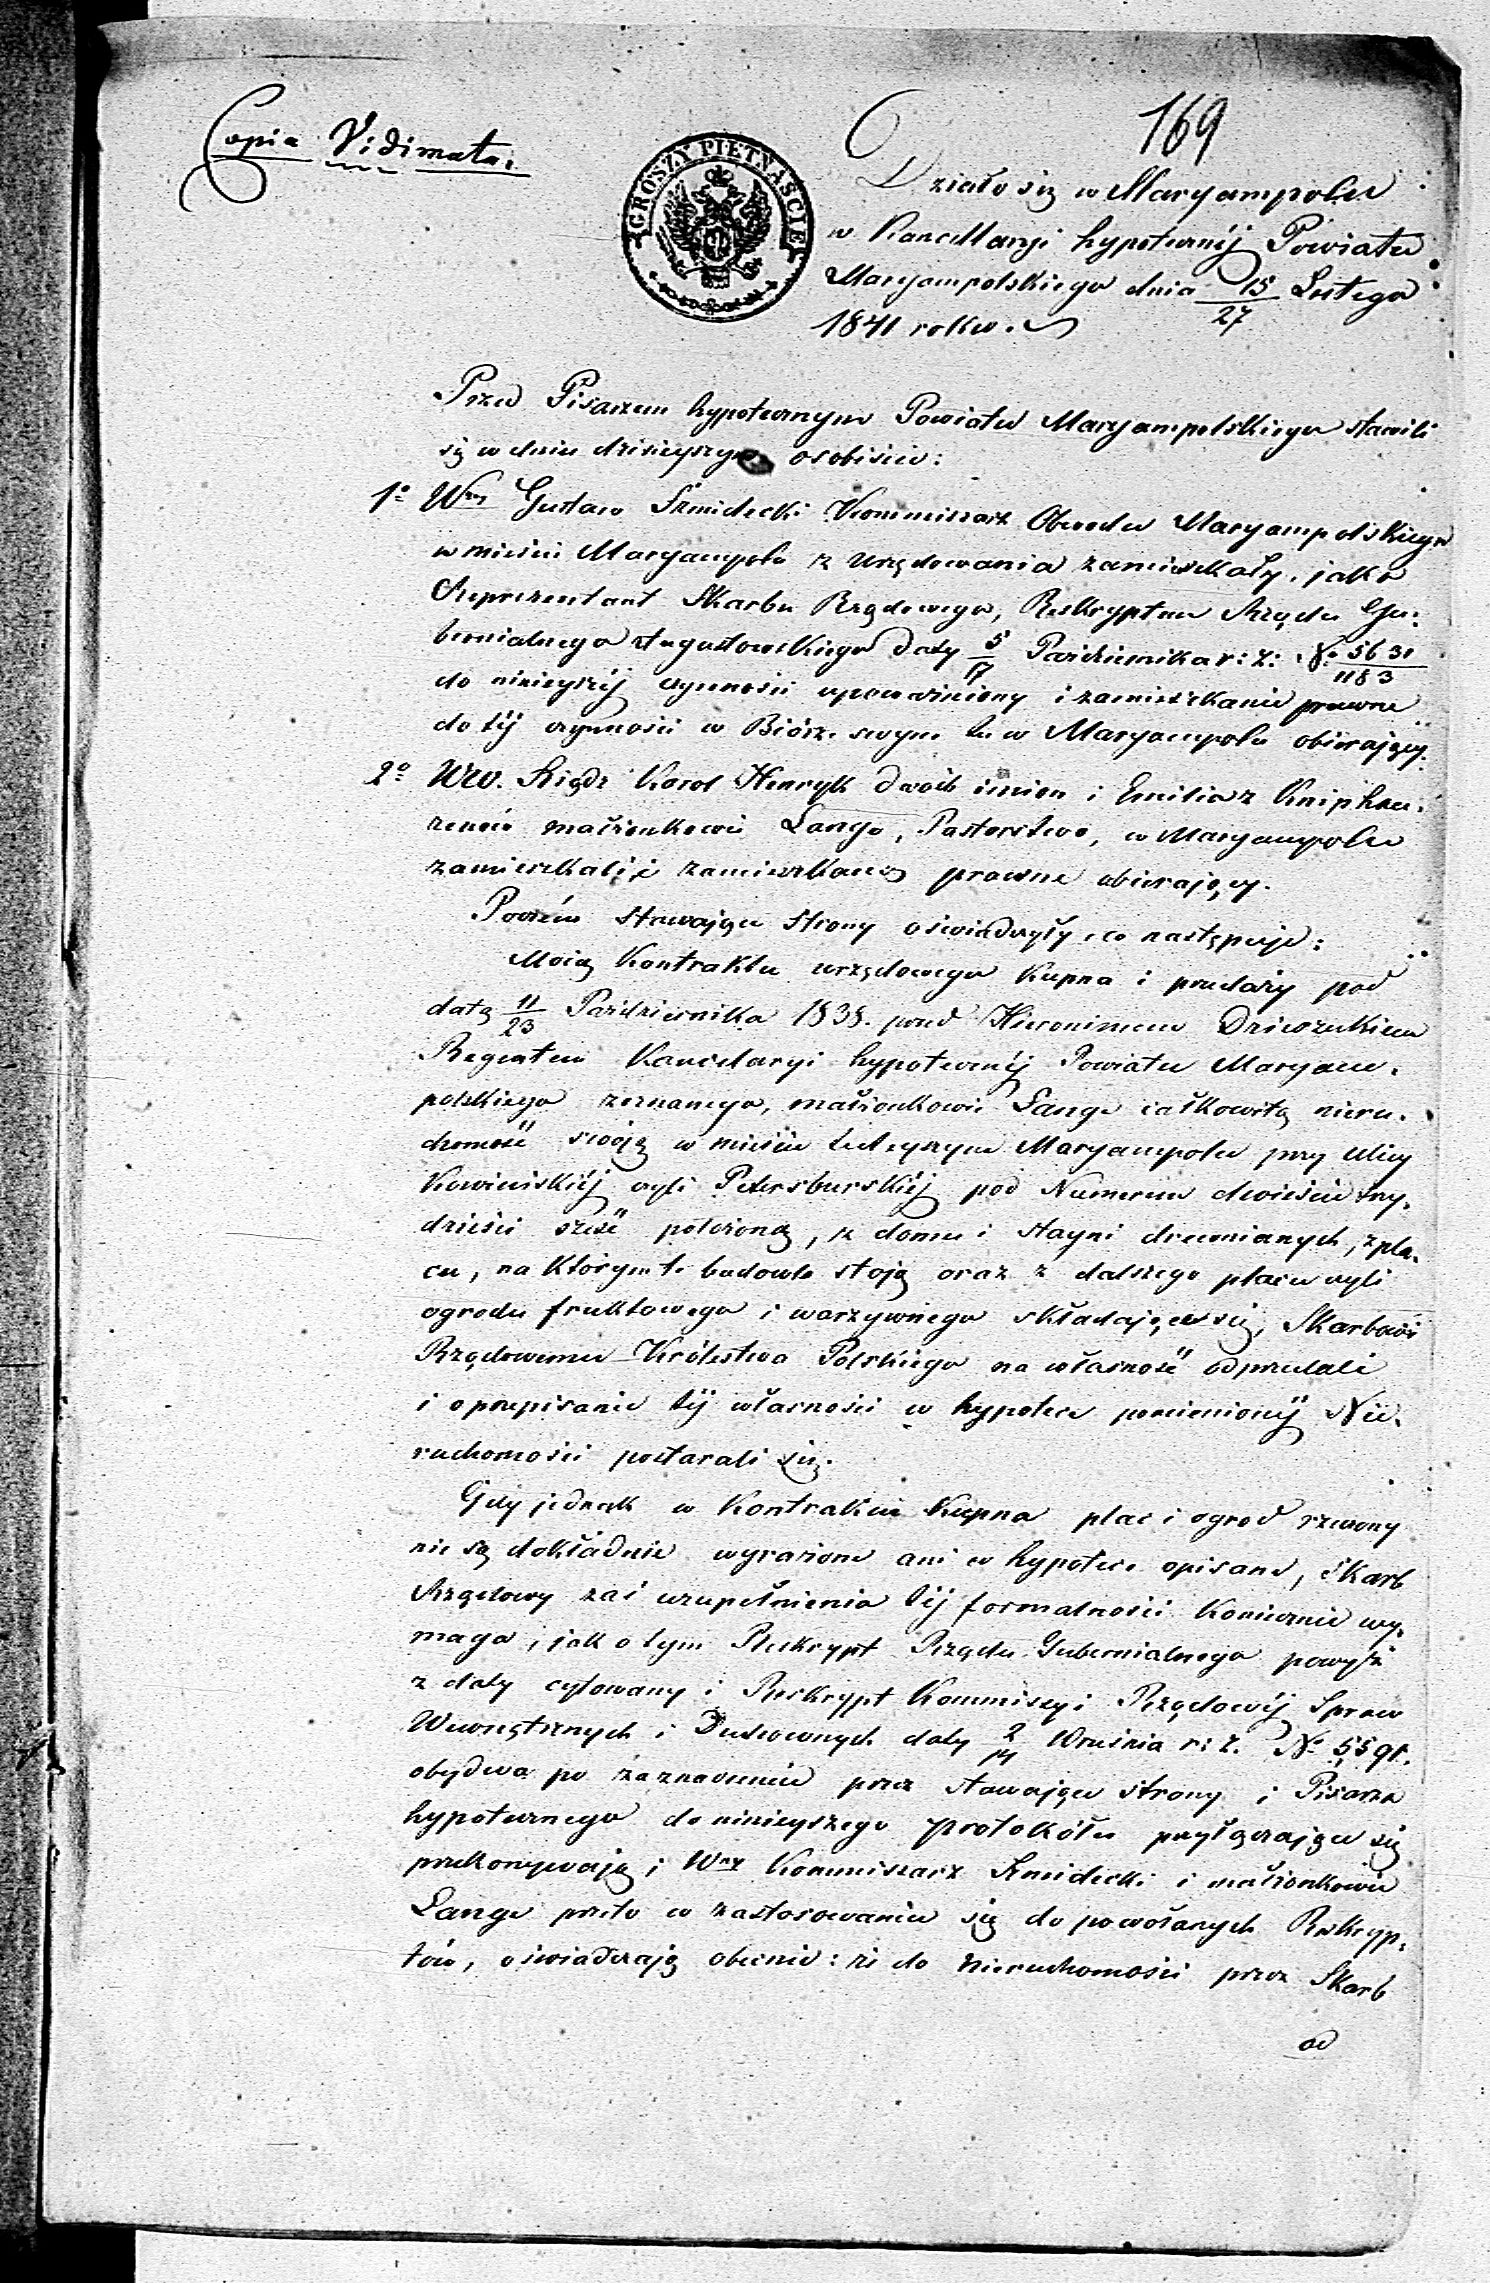 169
Copia Vidimata.
GROSZY PIĘTNAŚCIE
Działo się w Maryampolu
w Kancellaryi hypotecznéj Powiatu
Maryampolskiego dnia 15/27 Lutego
1841 roku.
Przed Pisarzem hypotecznym Powiatu Maryampolskiego stawili
się w dniu dzisieyszym osobiście:
1o Wny Gustaw Szmidecki Kommissarz Obwodu Maryampolskiego
w mieście Maryampolu z urzędowania zamieszkały, jako
Reprezentant Skarbu Rządowego, Reskryptem Rządu Gu-
bernialnego Augustowskiego daty 5/17 Października r: z: No 5630/1183
do ninieyszéj czynności upoważniony i zamieszkanie prawne
do téj czynności w Biórze swym tu w Maryampolu obierający.
2o WW. Xiądz Karol Henryk dwóch imion i Emilia z Kniphau-
zenów małżonkowie Lange, Pastorstwo, w Maryampolu
zamieszkali i zamieszkanie prawne obierający.
Poczém stawające strony oświadczyły, co następuje:
Mocą Kontraktu urzędowego Kupna i przedaży pod
datą 11/23 Października 1838. przed Hieronimem
Regentem Kancelaryi hypotecznéj Powiatu Maryam-
polskiego zeznanego, małżonkowie Lange całkowitą nieru-
chomość swóją w mieście tuteyszym Maryampolu przy ulicy
Kowieńskiéj czyli Petersburskiéj pod Numerem dwieście trzy-
dzieści sześć położoną, z domu i stayni drewnianych, z pla-
cu, na którym te budowle stoją oraz z dalszego placu czyli
ogrodu fruktowego i warzywnego składającą się, Skarbowi
Rządowemu Królestwa Polskiego na własność odprzedali
i o przepisanie téj własności w hypotece pomienionéj Nie-
ruchomości postarali się.
Gdy jednak w Kontrakcie Kupna plac i ogrod rzeczony
nie są dokładnie wyrażone ani w hypotece opisane, Skarb
Rządowy zaś uzupełnienia téj formalności koniecznie wy-
maga, jak o tym Reskrypt Rządu Gubernialnego powyż
z daty cytowany i Reskrypt Kommissyi Rządowéj Spraw
Wewnętrznych i Duchownych daty 2/14 Września r: z. No 5591.
obydwa po zaznaczeniu przez stawające strony i Pisarza
hypotecznego do ninieyszego protokółu przyłączające się
przekonywają; Wny Kommissarz Szmidecki i małżonkowie
Lange przeto w zastosowaniu się do powołanych Reskryp-
tów, oświadczają obecnie: że do Nieruchomości przez Skarb
od